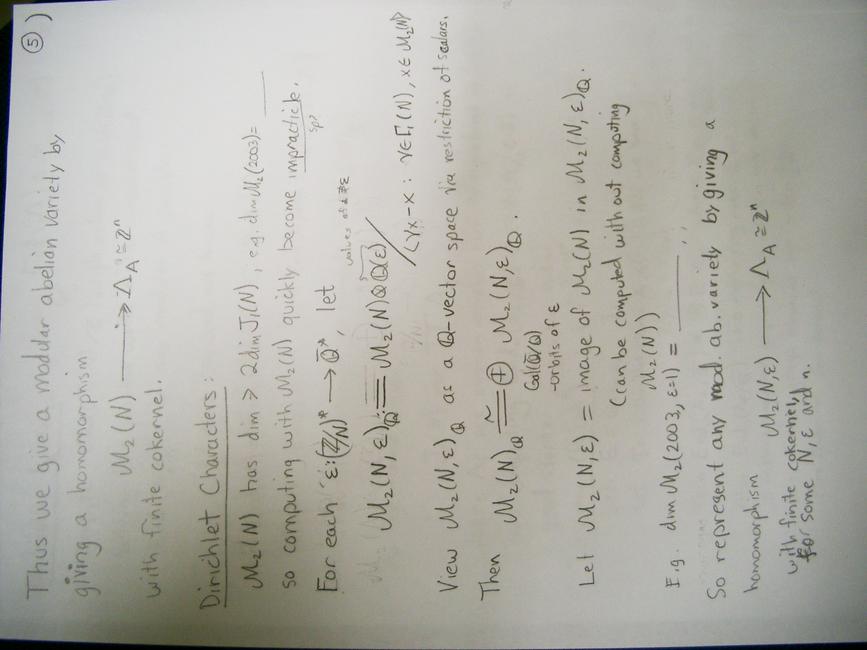 ⑤)
Thus we give a modular abelian variety by
giving a homomorphism
M₂(N) ⟶ Λ_A ≅ ℤⁿ
with finite cokernel.
Dirichlet Characters:
M₂(N) has dim > 2dim J₁(N), e.g. dim M₂(2003)= ____
so computing with M₂(N) quickly become impracticle.
sp?
For each ε:(ℤ/N)* ⟶ ℚ̄*, let
values of ε
M₂(N,ε)_ℚ := M₂(N)⊗ℚ(ε) / (γx-x : γ∈Γ₁(N), x∈M₂(N))
View M₂(N,ε)_ℚ as a ℚ-vector space via restriction of scalars.
Then M₂(N)_ℚ ≅ ⊕ M₂(N,ε)_ℚ.
Gal(ℚ̄/ℚ)
-orbits of ε
Let M₂(N,ε) = image of M₂(N) in M₂(N,ε)_ℚ.
(can be computed without computing
M₂(N))
E.g. dim M₂(2003, ε=1) = ____.
So represent any mod. ab. variety by giving a
homomorphism M₂(N,ε) ⟶ Λ_A ≅ ℤⁿ
with finite cokernel,
for some N, ε and n.